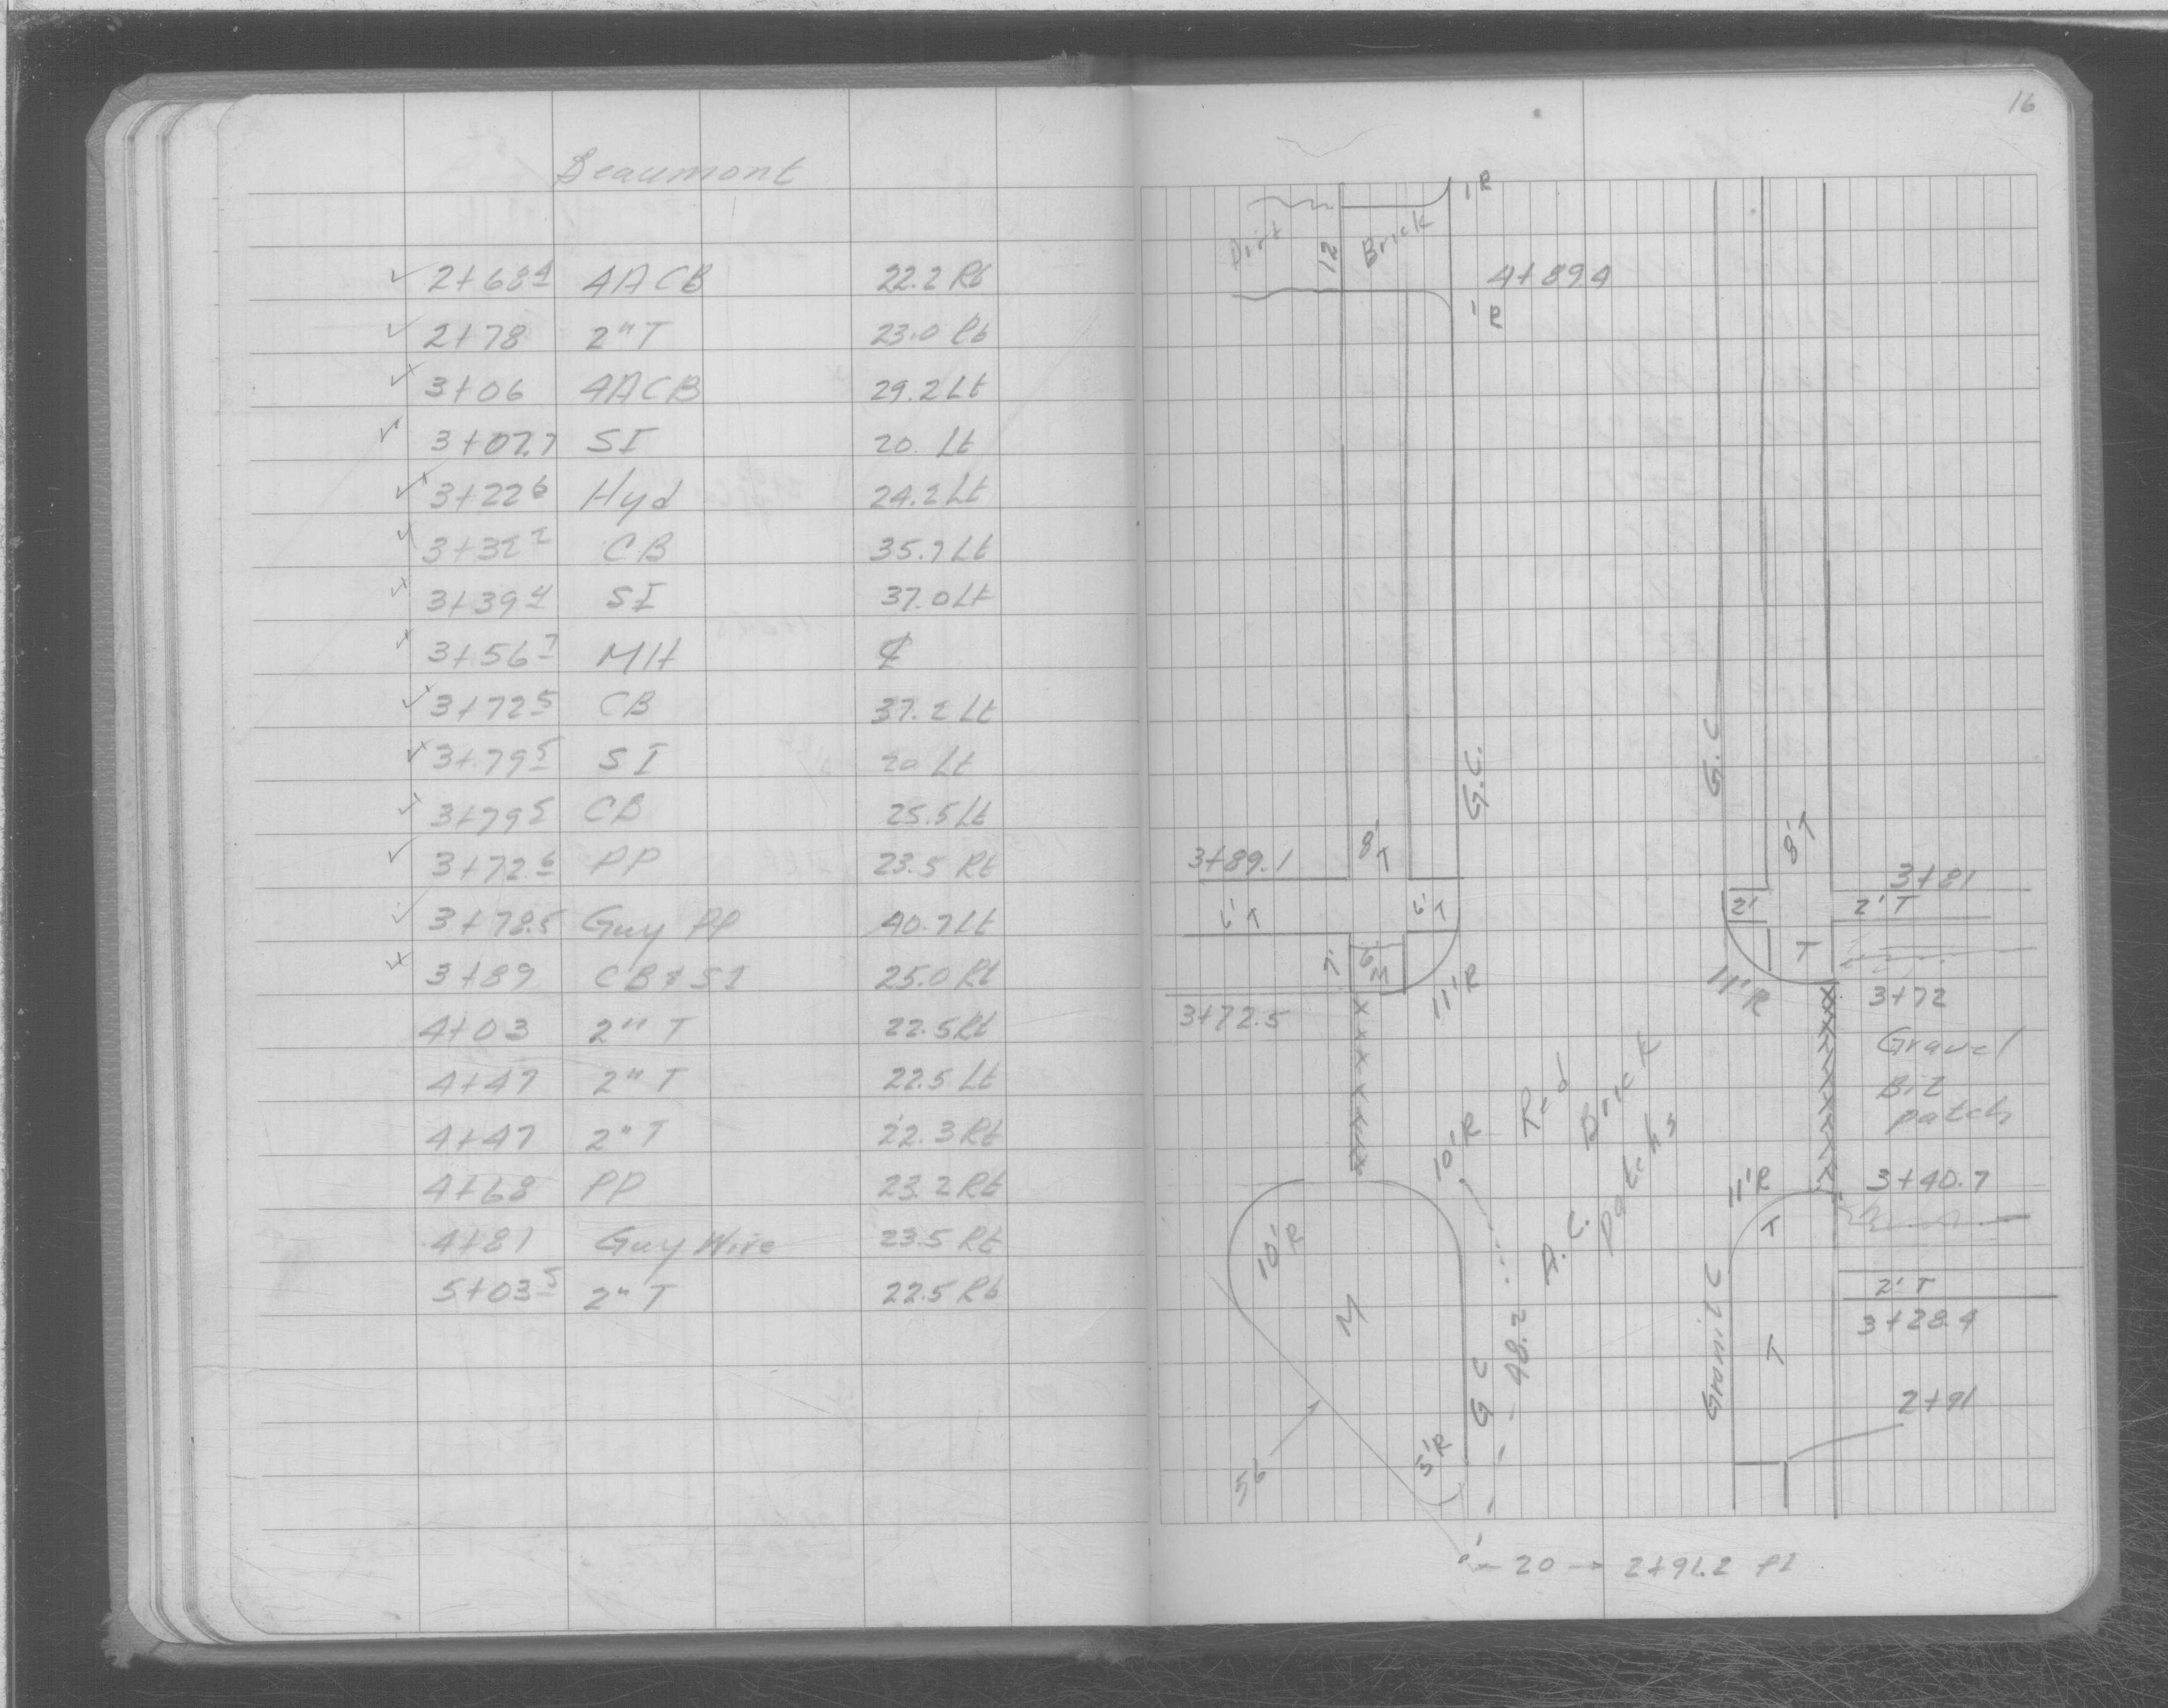 Beaumont
2+68.4 4ACB 22.2 Rt
2+78 2"T 23.0 Rt
3+06 4ACB 29.2 Lt
3+07.7 SI 20. Lt
3+22.6 Hyd 24.2 Lt
CB 35.7 Lt
3+39.4 SI 37.0 Lt
3+56.7 MH ℄
3+72.5 CB 37.2 Lt
3+79.5 SI 20 Lt
3+79.5 CB 25.5 Lt
3+72.6 PP 23.5 Rt
3+78.5 Guy PP 40.7 Lt
3+89 CB & SI 25.0 Rt
4+03 2" T 22.5 Rt
4+47 2" T 22.5 Lt
4+47 2" T 22.3 Rt
4+68 PP 23.2 Rt
4+81 Guy Wire 23.5 Rt
5+03.5 2" T 22.5 Rt
16
1'R
Dirt 12 Brick
4+89.4
1'R
G.C. G.C
8'T 8'T
3+89.1
3+81
6'T 6'T 2' 2'T
T
11'R 11'R
3+72.5 3+72
Gravel
Bit
patch
Red
Brick
A.C. patchs
10'R 11'R 3+40.7
10'R T
2'T
3+28.4
M G C 48.2 Granit C T
2+91
56 5'R
20 → 2+91.2 PI